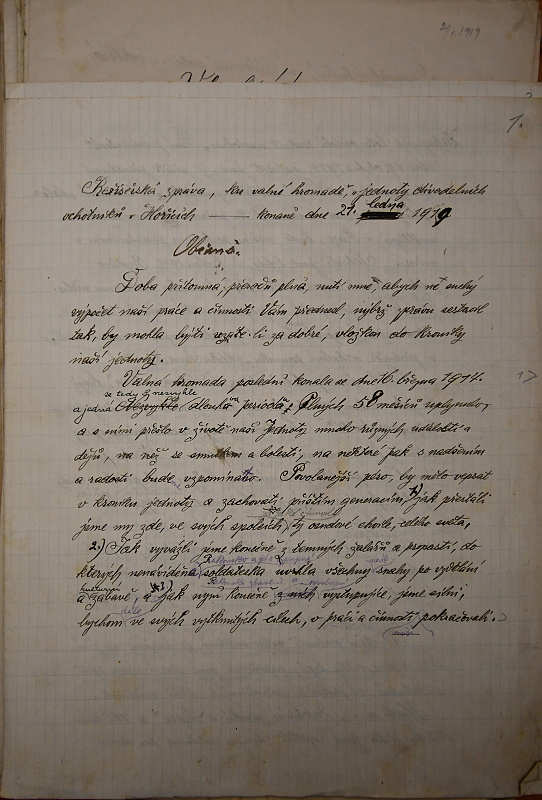 21/1. 1919
1.
Režisérská zpráva, ku valné hromadě, „jednoty divadelních
ochotníků v Hořicích — konané dne 21. ledna 1919
Občané.
Doba přítomná, převratů plná, nutí mne, abych ne suchý
výpočet naší práce a činnosti Vám přednesl, nýbrž zprávu sestavil
tak, by mohla býti za dobré, vložkou do kroniky
naší jednoty.
Valná hromada poslední konala se dne 6. března 1914.
se tedy o nezvykle
a jedná Nezvykle dlouhá perioda Plných 58 měsíců uplynulo,
a s nimi přešlo v životě naší Jednoty mnoho různých událostí a
dějů, na něž se smutkem a bolestí, na některé pak s nadšením
a radostí bude vzpomínáno. Povolanější pero, by mělo vepsat
v kroniku jednoty a zachovati příštím generacím, jak přestáli
jsme my zde, ve svých spolcích, ty osudové chvíle, celého světa,
2.) Jak vyvázli jsme konečně z temných žalářů a propastí, do
kterých nenáviděná soldateska uvrhla všechny snahy po vzdělání
kulturní
a zábavě, a jak nyní konečně vystupujíce, jsme silni,
bychom ve svých vytknutých cílech, v práci a činnosti pokračovali.